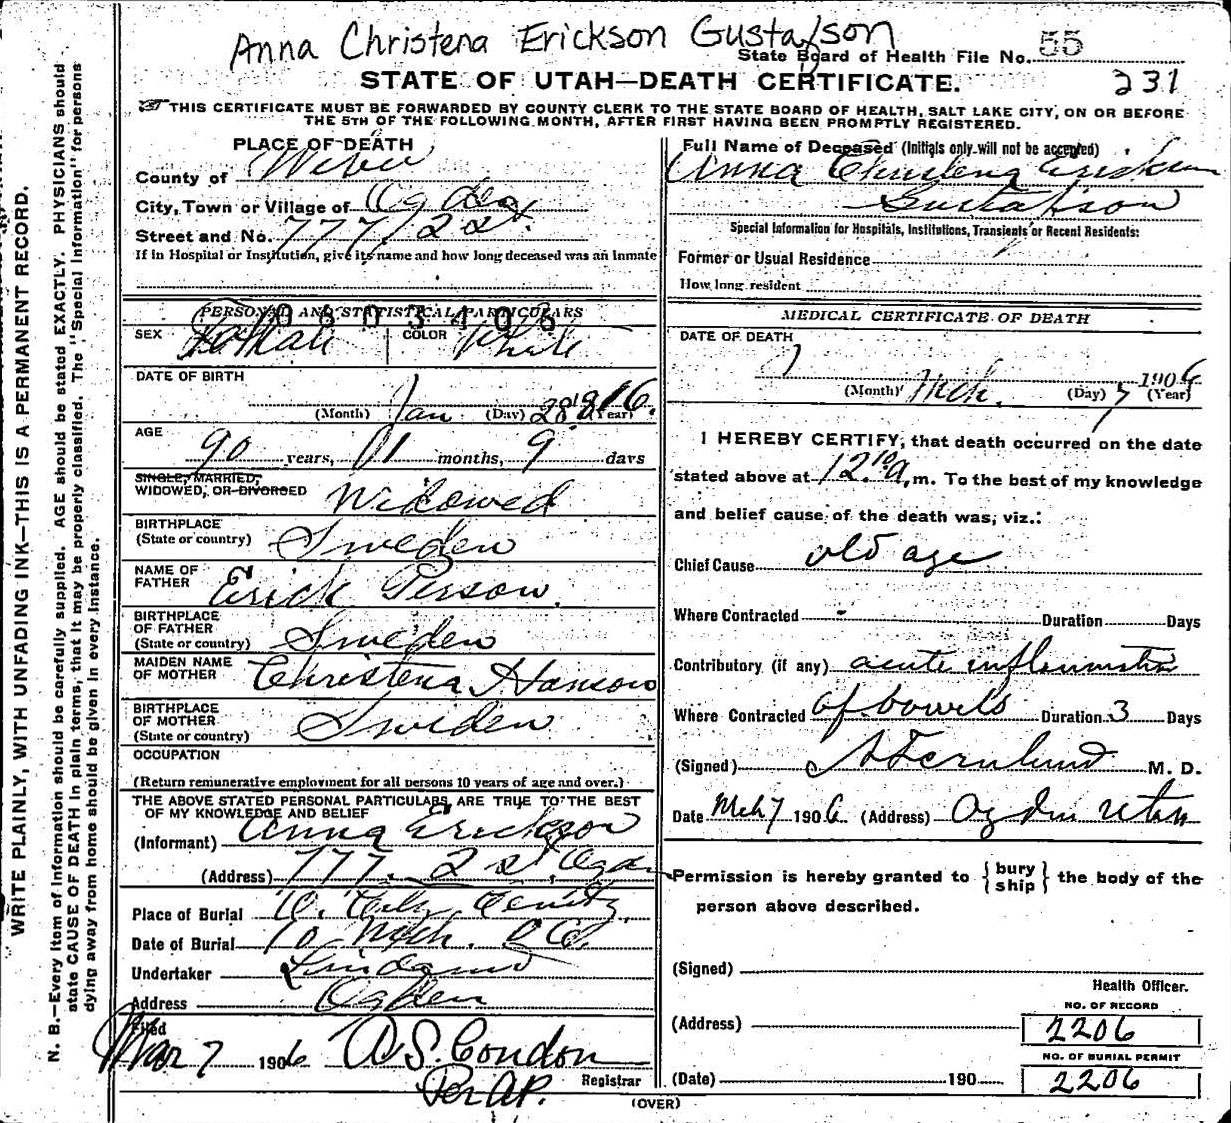 Anna Christena Erickson Gustafson
State Board of Health File No. 55
STATE OF UTAH—DEATH CERTIFICATE.
231
THIS CERTIFICATE MUST BE FORWARDED BY COUNTY CLERK TO THE STATE BOARD OF HEALTH, SALT LAKE CITY, ON OR BEFORE
THE 5TH OF THE FOLLOWING MONTH, AFTER FIRST HAVING BEEN PROMPTLY REGISTERED.
WRITE PLAINLY, WITH UNFADING INK—THIS IS A PERMANENT RECORD.
N. B.—Every item of information should be carefully supplied. AGE should be stated EXACTLY. PHYSICIANS should
state CAUSE OF DEATH in plain terms, that it may be properly classified. The "Special Information" for persons
dying away from home should be given in every instance.
PLACE OF DEATH
County of Weber
City, Town or Village of Ogden
Street and No. 777 2 st.
If in Hospital or Institution, give its name and how long deceased was an inmate
PERSONAL AND STATISTICAL PARTICULARS
0603406
SEX
COLOR White
DATE OF BIRTH
Jan 28 1816.
(Month) (Day) (Year)
AGE
90 years, 01 months, 9 days
SINGLE, MARRIED,
WIDOWED, OR DIVORCED Widowed
BIRTHPLACE
(State or country) Sweden
NAME OF
FATHER Erick Person.
BIRTHPLACE
OF FATHER
(State or country) Sweden
MAIDEN NAME
OF MOTHER Christena Hanson
BIRTHPLACE
OF MOTHER
(State or country) Sweden
OCCUPATION
(Return remunerative employment for all persons 10 years of age and over.)
THE ABOVE STATED PERSONAL PARTICULARS ARE TRUE TO THE BEST
OF MY KNOWLEDGE AND BELIEF
(Informant) Anna Erickson
(Address) 777. 2 st. Ogden
Place of Burial
Date of Burial 10 Mch. 06.
Undertaker Lindquist
Address Ogden
Filed
Mar 7 1906 A S. Condon
Registrar
Per AP.
Full Name of Deceased (Initials only will not be accepted)
Anna Christena Erickson
Gustafson
Special Information for Hospitals, Institutions, Transients or Recent Residents:
Former or Usual Residence
How long resident
MEDICAL CERTIFICATE OF DEATH
DATE OF DEATH
7 1906
(Month) Mch. (Day) 7 (Year)
I HEREBY CERTIFY, that death occurred on the date
stated above at 12.10 a, m. To the best of my knowledge
and belief cause of the death was, viz.:
Chief Cause old age
Where Contracted - Duration Days
Contributory (if any) acute inflammation
Where Contracted of bowels Duration 3 Days
(Signed) M. D.
Date Mch 7 1906 (Address) Ogden Utah
Permission is hereby granted to {bury ship} the body of the
person above described.
(Signed)
Health Officer.
NO. OF RECORD
(Address) 2206
NO. OF BURIAL PERMIT
(Date) 190 2206
(OVER)